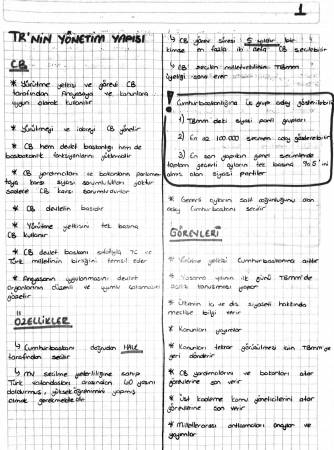 1
TR'NİN YÖNETİM YAPISI
CB
* Yürütme yetkisi ve görevi CB
tarafından Anayasaya ve kanunlara
uygun olarak kullanılır
* Yürütmeyi ve idareyi CB yönetir
* CB hem devlet başkanlığı hem de
başbakanlık fonksiyonlarını yüklenmiştir
* CB yardımcıları ve bakanların parlamen-
toya karşı siyasi sorumlulukları yoktur
sadece CB karşı sorumludurlar
* CB devletin başıdır
* Yürütme yetkisini tek başına
CB kullanır
* CB devlet başkanı sıfatıyla TC ve
Türk milletinin birliğini temsil eder
* Anayasanın uygulanmasını devlet
organlarının düzenli ve uyumlu çalışmasını
gözetir
ÖZELLİKLER
↳ Cumhurbaşkanı doğrudan HALK
tarafından seçilir
↳ MV seçilme yeterliliğine sahip
Türk vatandaşları arasından 40 yaşını
doldurmuş, yükseköğrenimini yapmış
olmak gerekmektedir
↳ CB görev süresi 5 yıldır bir
kimse en fazla iki defa CB seçilebilir
↳ CB seçilen milletvekilinin TBMM
üyeliği sona erer
Cumhurbaşkanlığına üç grup aday gösterebilir
1) TBMM deki siyasi parti grupları
2) En az 100.000 seçmen aday gösterebilir
3) En son yapılan genel seçimlerde
toplam geçerli oyların tek başına %5'ini
almış olan siyasi partiler
* Geçerli oyların salt çoğunluğunu alan
aday Cumhurbaşkanı seçilir
GÖREVLERİ
* Yürütme yetkisi Cumhurbaşkanına aittir
* Yasama yılının ilk günü TBMM'de
açılış konuşması yapar
* Ülkenin iç ve dış siyaseti hakkında
meclise bilgi verir
* Kanunları yayımlar
* Kanunları tekrar görüşülmesi için TBMM'ye
geri gönderir
* CB yardımcılarını ve bakanları atar
görevlerine son verir
* Üst kademe kamu yöneticilerini atar
görevlerine son verir
* Milletlerarası antlaşmaları onaylar ve
yayımlar